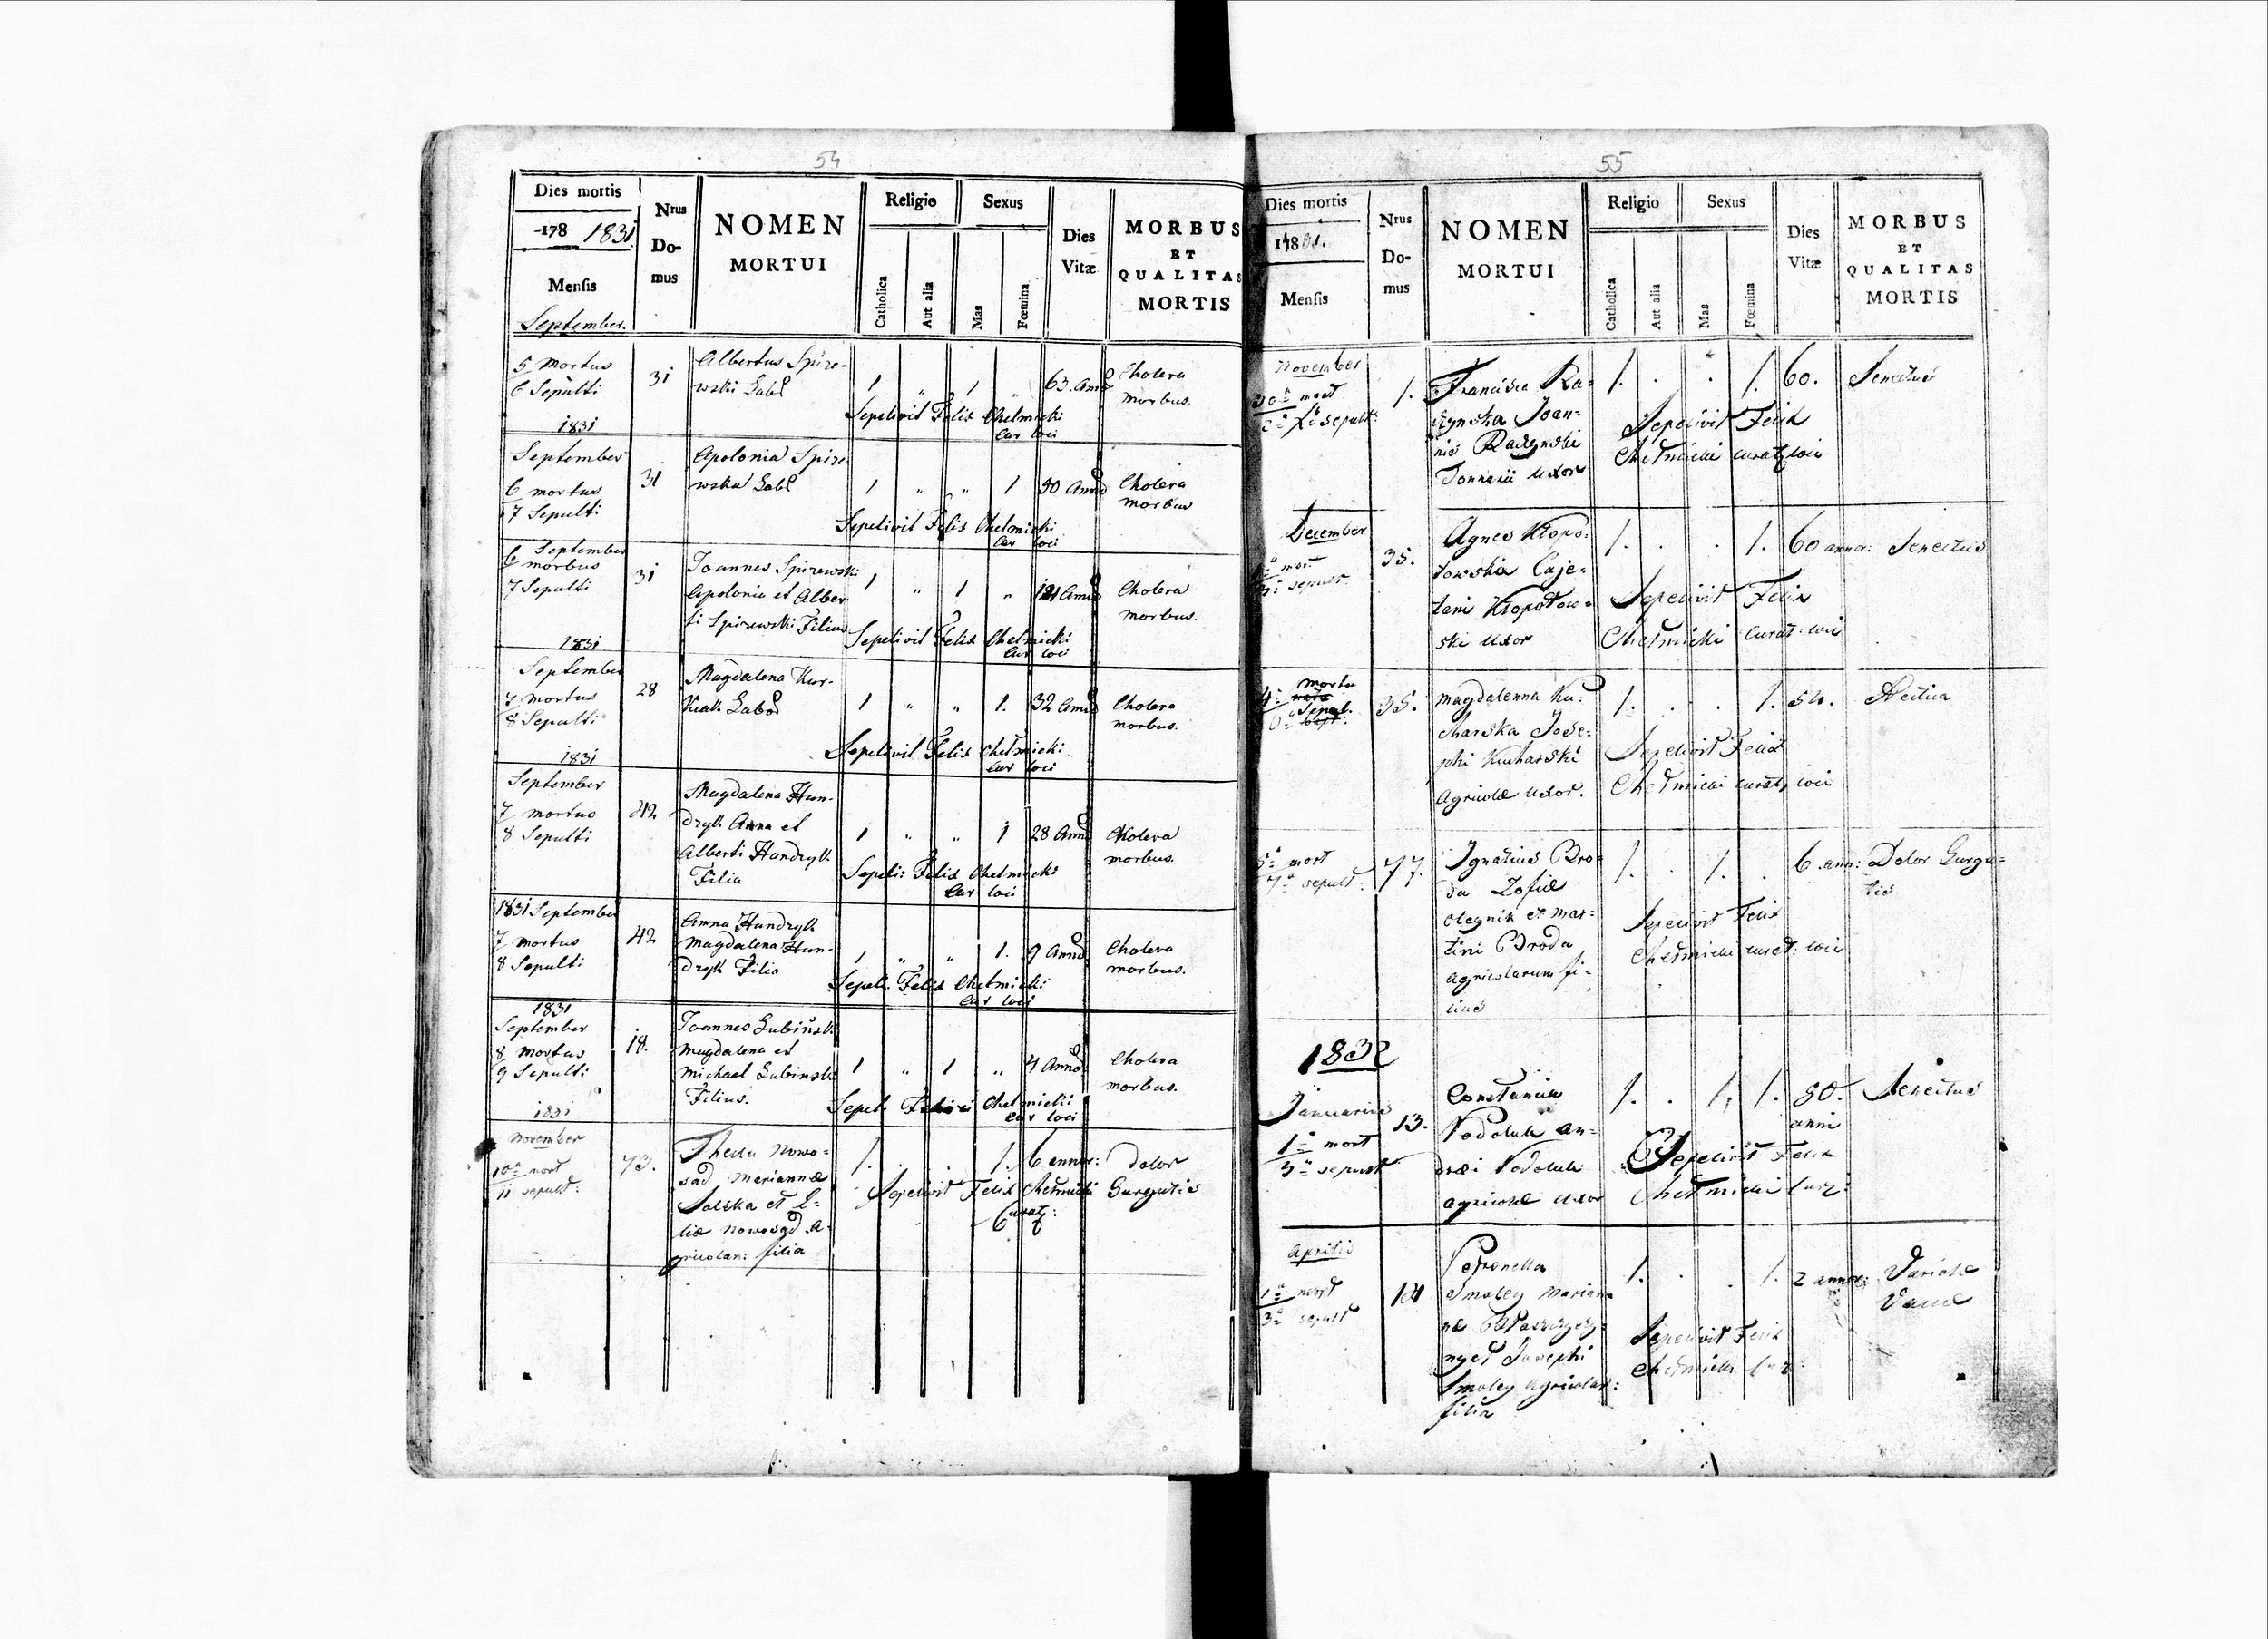 54
Dies mortis
Nrus
Do-
mus
NOMEN
MORTUI
Religio
Sexus
Dies
Vitæ
MORBUS
ET
QUALITAS
MORTIS
-178 1831
Mensis
September.
Catholica
Aut alia
Mas
Fœmina
5 mortus
6 Sepulti
31
Albertus Spire-
wski
1 „ 1 „
63. Ann
Cholera
morbus.
Sepelivit Felix Chelmicki
Cur loci
1831
September
6 mortus
7 Sepulti
31
Apolonia Spire-
wska
1 „ „ 1
Cholera
morbus
Sepelivit Felix Chelmicki
Cur loci
September
6 morbus
7 Sepulti
31
Joannes Spirewski
Apolonia et Alber
ti Spirewski Filius
1 „ 1 „
Cholera
morbus.
Sepelivit Felix Chelmicki
Cur loci
1831
September
7 mortus
8 Sepulti
28
Magdalena Kur-
1 „ „ 1.
32 Ann
Cholera
morbus.
Sepelivit Felix Chelmicki
Cur loci
1831
September
7 mortus
8 Sepulti
42
Magdalena Hun-
dryk Anna et
Alberti Hundryk
Filia
1 „ „ 1
28 Ann
Cholera
morbus.
Sepeli: Felix Chelmicki
Cur loci
1831 September
7 mortus
8 Sepulti
42
Anna Hundryk
Magdalena Hun-
dryk Filia
1 „ „ 1.
9 Ann
Cholera
morbus.
Sepeli. Felix Chelmicki
Cur loci
1831
September
8 mortus
9 Sepulti
18.
Joannes Lubinski
Magdalena et
Michael Lubinski
Filius.
1 „ 1 „
4 Ann
Cholera
morbus.
Sepeli. Chelmicki
Cur loci
1831
November
10a mort
11 sepult:
73.
Thecla Nowo=
sad Mariannæ
Salska et E=
liæ Nowosad A=
gricolar: filia
1. . . 1.
6 annor:
Dolor
Gurgutis
Sepelivit Felix Chełmicki
Curat:
55
Dies mortis
Nrus
Do-
mus
NOMEN
MORTUI
Religio
Sexus
Dies
Vitæ
MORBUS
ET
QUALITAS
MORTIS
Mensis
Catholica
Aut alia
Mas
Fœmina
November
30a mort
sepult:
1.
Francisca Ra=
czynska Joan=
nis Raczynski
uxor
1. . . 1.
60.
Senectus
Sepelivit Felix
Chełmicki curat loci
December
mort
sepult.
35.
Agnes Kłopo=
towska Caje=
tani Kłopotow=
ski uxor
1. . . 1.
60 annor:
Senectus
Sepelivit Felix
Chełmicki curat: loci
mortu
Sepul.
35.
Magdalenna Ku=
charska Jose=
phi Kucharski
Agricolæ uxor.
1. . . 1.
54.
Sepelivit Felix
Chełmicki curat, loci
5a mort
7a sepult:
77.
Ignatius Bro=
da Zofiæ
Oleynik et Mar=
tini Broda
Agricolarum fi=
lius
1. . 1. .
6 ann:
Dolor Gurgu=
tis
Sepelivit Felix
Chełmicki curat: loci
1832
Januarius
1a mort
3a sepult
13.
Constancia
Podoluk An=
dreæi Podoluk
Agricolæ uxor
1. . 1, 1.
80.
anni
Senectus
Sepelivit Felix
Chełmicki Cur:
Aprilis
1a mort
3a sepult
Petronella
Smoley Marian=
næ
nyet Josephi
Smoley Agricolar:
filia
1. . . 1.
2 annor:
Variolæ
Sepelivit Felix
Chełmicki Cur: